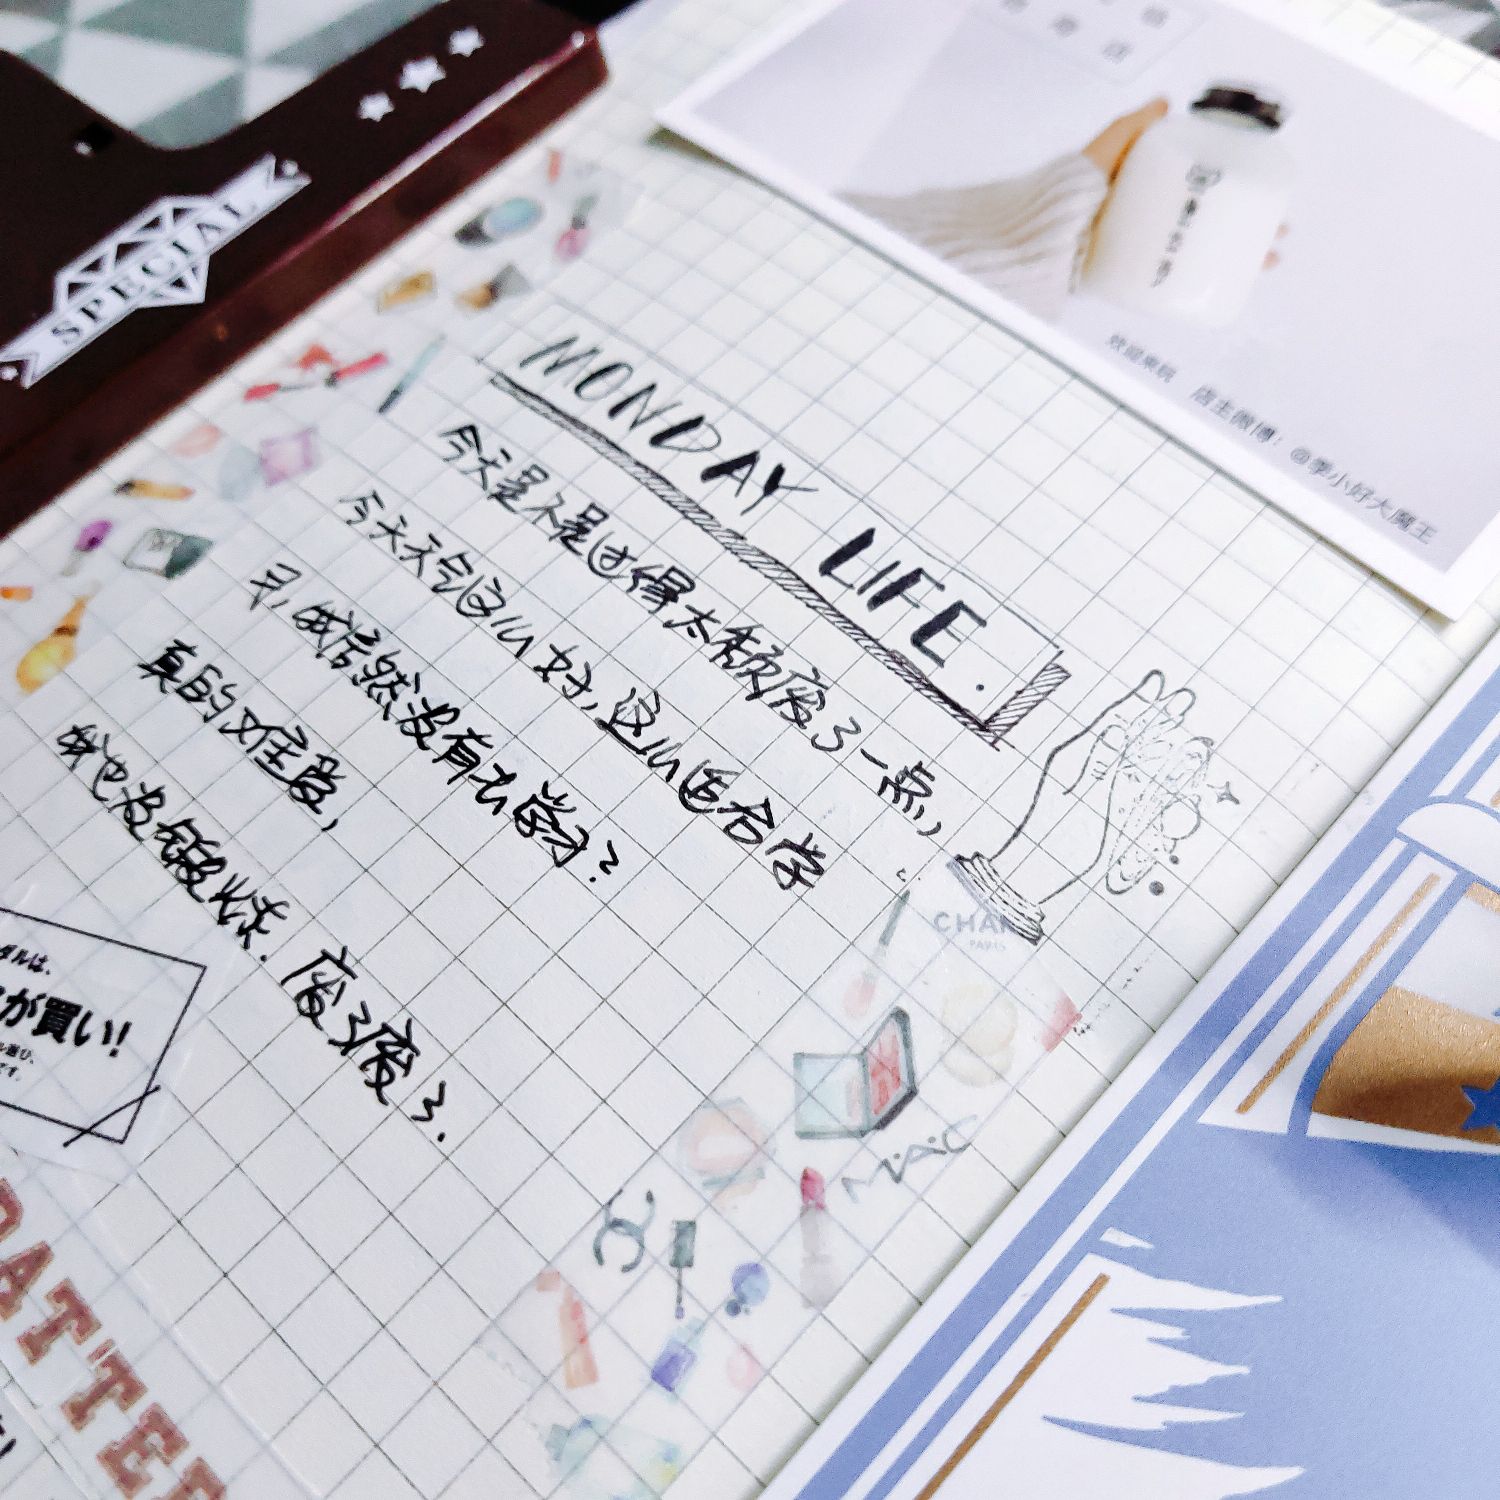 SPECIAL
欢迎来玩 店主微博：@季小好大魔王
MONDAY LIFE.
今天是不是过得太颓废了一点，
今天天气这么好，这么适合学
习，我居然没有去学习？
真的又狂废，
我也没锻炼. 废了废了.
CHAN
PARIS
MAC
タルは、
が買い!
です。
DATTER